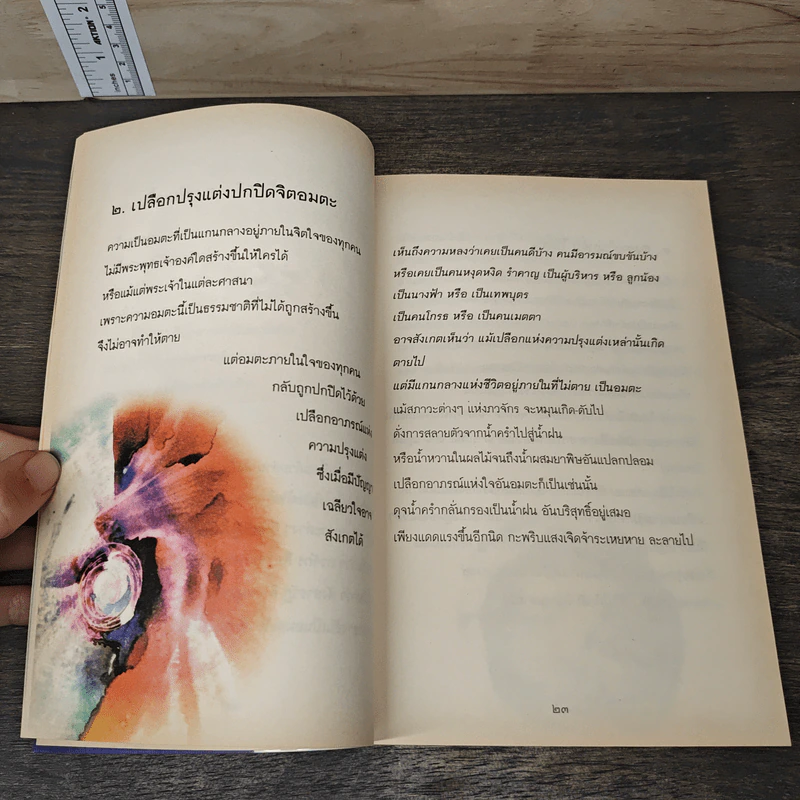 ๒. เปลือกปรุงแต่งปกปิดจิตอมตะ
ความเป็นอมตะที่เป็นแกนกลางอยู่ภายในจิตใจของทุกคน
ไม่มีพระพุทธเจ้าองค์ใดสร้างขึ้นให้ใครได้
หรือแม้แต่พระเจ้าในแต่ละศาสนา
เพราะความอมตะนี้เป็นธรรมชาติที่ไม่ได้ถูกสร้างขึ้น
จึงไม่อาจทำให้ตาย
แต่อมตะภายในใจของทุกคน
กลับถูกปกปิดไว้ด้วย
เปลือกอาภรณ์แห่ง
ความปรุงแต่ง
ซึ่งเมื่อมีปัญญา
เฉลียวใจอาจ
สังเกตได้
เห็นถึงความหลงว่าเคยเป็นคนดีบ้าง คนมีอารมณ์ขบขันบ้าง
หรือเคยเป็นคนหงุดหงิด รำคาญ เป็นผู้บริหาร หรือ ลูกน้อง
เป็นนางฟ้า หรือ เป็นเทพบุตร
เป็นคนโกรธ หรือ เป็นคนเมตตา
อาจสังเกตเห็นว่า แม้เปลือกแห่งความปรุงแต่งเหล่านั้นเกิด
ตายไป
แต่มีแกนกลางแห่งชีวิตอยู่ภายในที่ไม่ตาย เป็นอมตะ
แม้สภาวะต่างๆ แห่งภวจักร จะหมุนเกิด-ดับไป
ดั่งการสลายตัวจากน้ำครำไปสู่น้ำฝน
หรือน้ำหวานในผลไม้จนถึงน้ำผสมยาพิษอันแปลกปลอม
เปลือกอาภรณ์แห่งใจอันอมตะก็เป็นเช่นนั้น
ดุจน้ำครำกลั่นกรองเป็นน้ำฝน อันบริสุทธิ์อยู่เสมอ
เพียงแดดแรงขึ้นอีกนิด กะพริบแสงเจิดจ้าระเหยหาย ละลายไป
๒๓
AKTION
inches
1
2